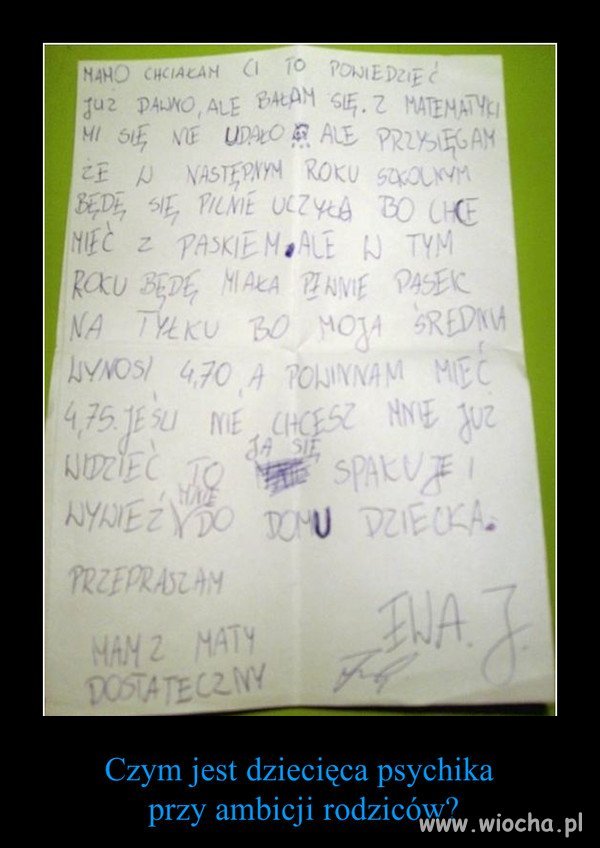 MAMO CHCIAŁAM CI TO POWIEDZIEĆ
JUŻ DAWNO, ALE BAŁAM SIĘ. Z MATEMATYKI
MI SIĘ NIE UDAŁO ALE PRZYSIĘGAM
ŻE W NASTĘPNYM ROKU SZKOLNYM
BĘDĘ SIĘ PILNIE UCZYŁA BO CHCE
MIEĆ Z PASKIEM. ALE W TYM
ROKU BĘDĘ MIAŁA PEWNIE PASEK
NA TYŁKU BO MOJA ŚREDNIA
WYNOSI 4,70 A POWINNAM MIEĆ
4,75. JEŚLI NIE CHCESZ MNIE JUŻ
WIDZIEĆ TO JA SIĘ SPAKUJE I
WYWIEŹ MNIE DO DOMU DZIECKA.
PRZEPRASZAM
EWA. J.
MAM Z MATY
DOSTATECZNY
Czym jest dziecięca psychika
przy ambicji rodziców?
www.wiocha.pl